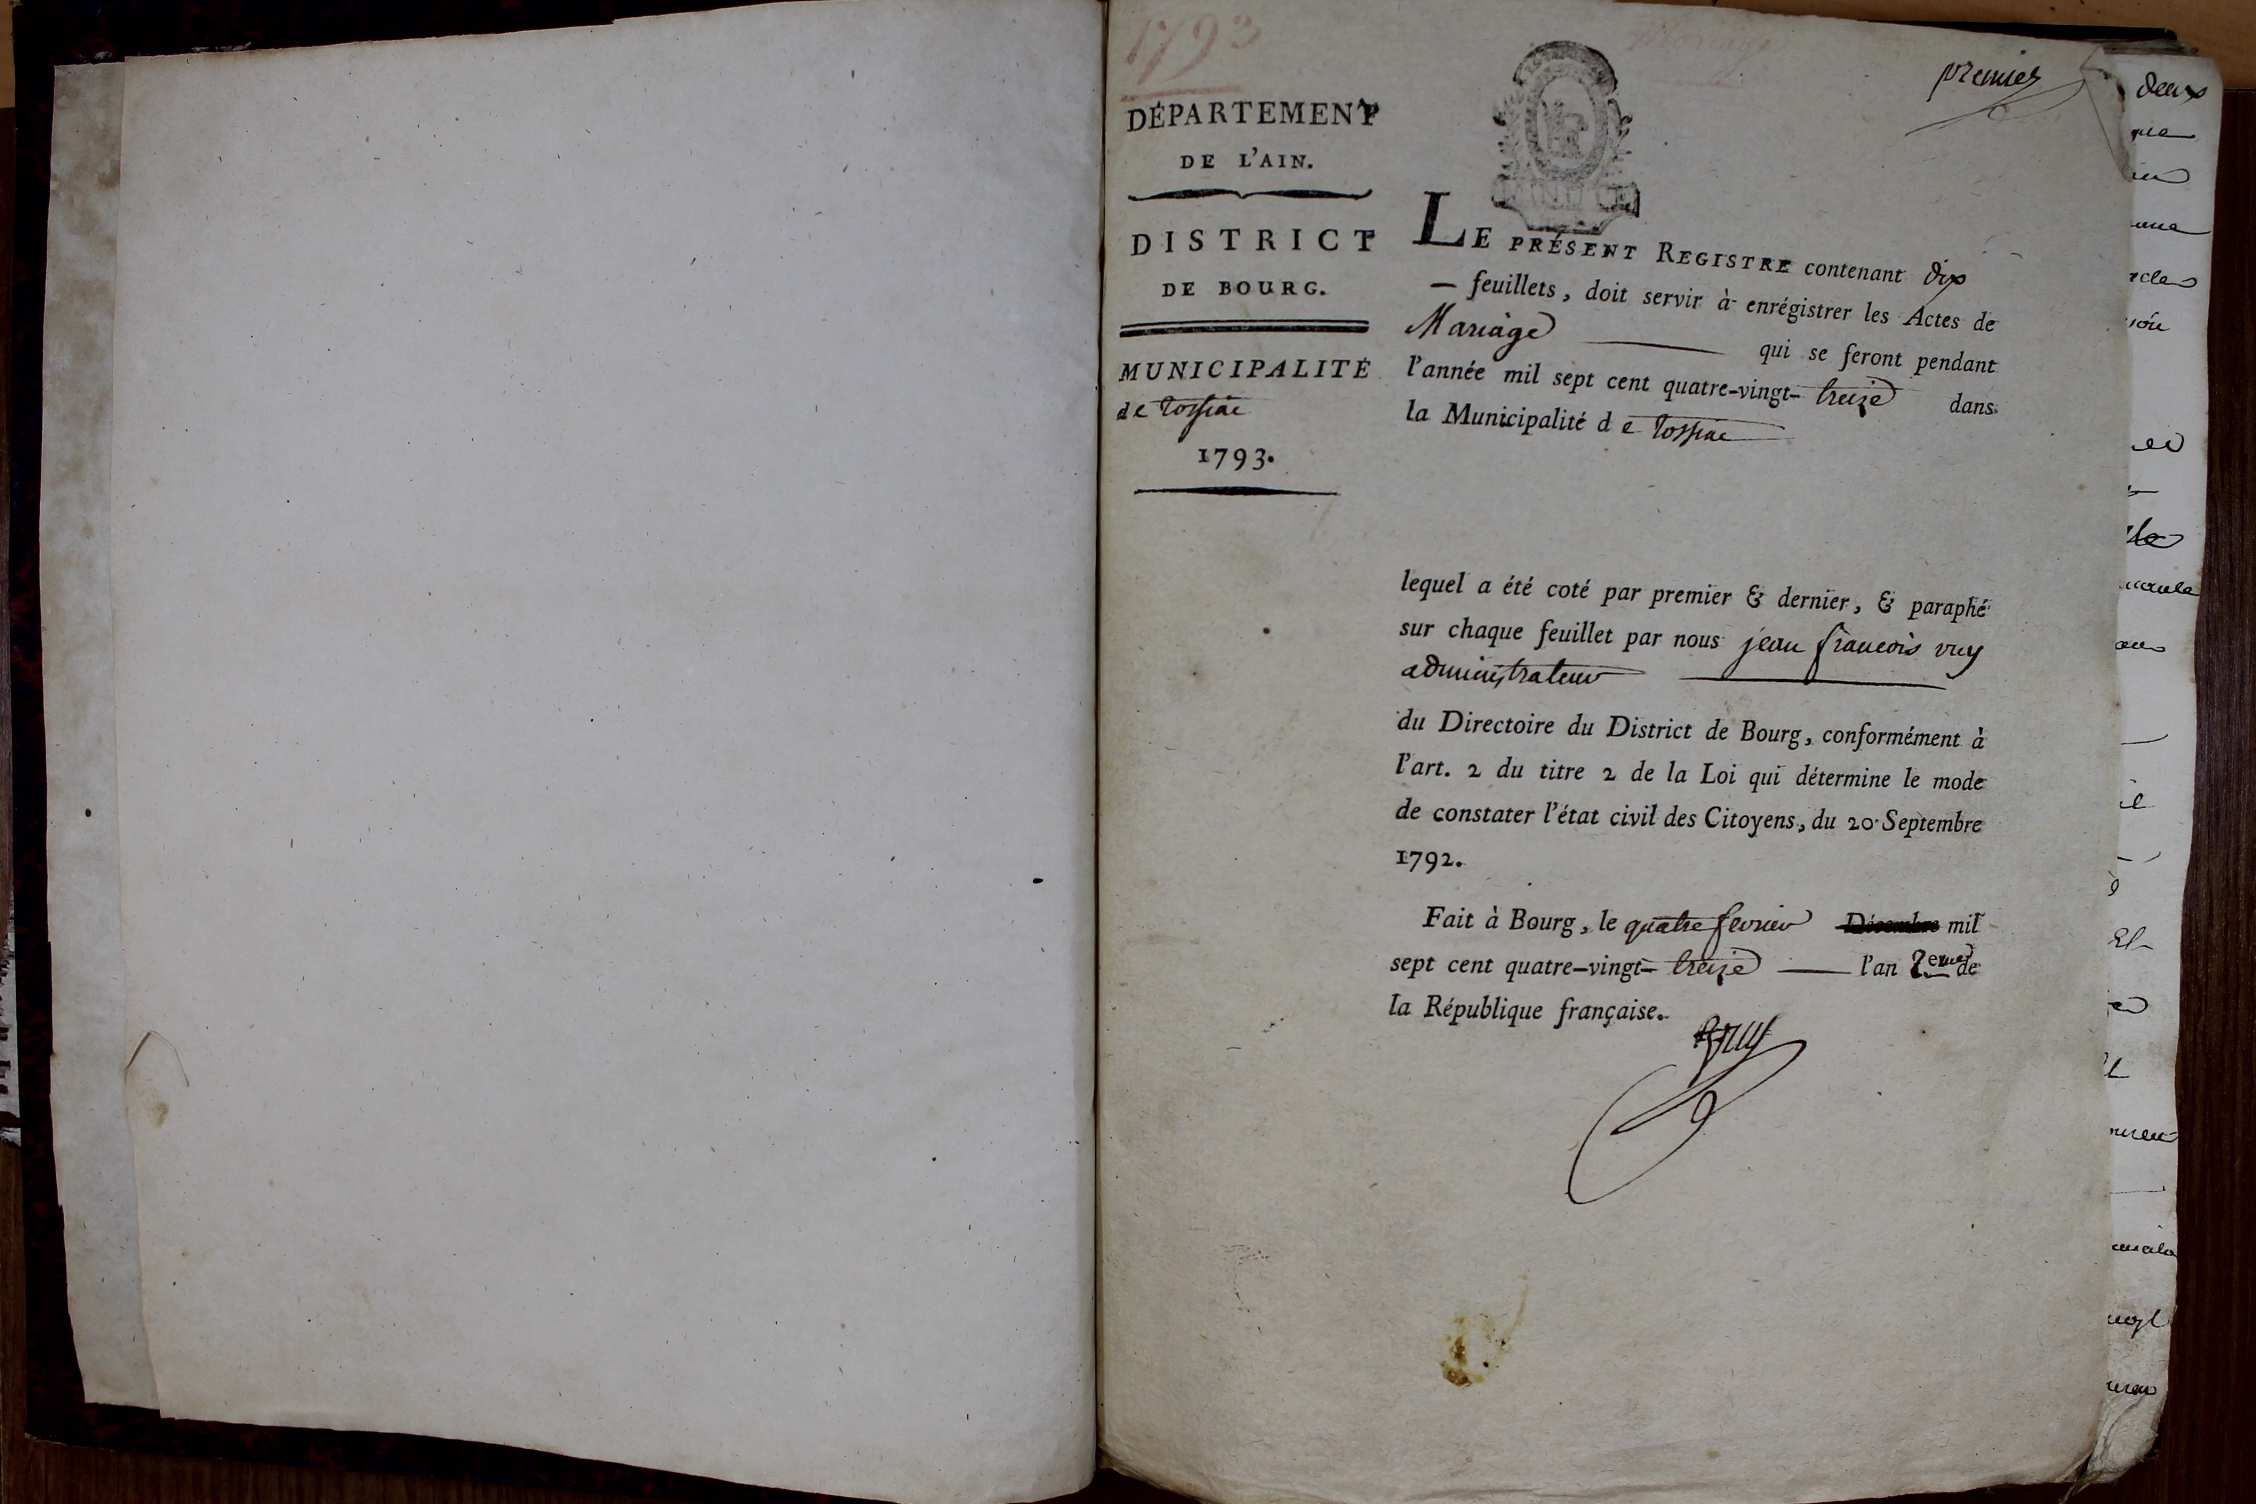 1793
Mariage
premier
DÉPARTEMENT
DE L'AIN.
DISTRICT
DE BOURG.
MUNICIPALITÉ
de tossiac
1793.
LE PRÉSENT REGISTRE contenant dix
— feuillets, doit servir à enrégistrer les Actes de
Mariage qui se feront pendant
l'année mil sept cent quatre-vingt- treize dans
la Municipalité d e tossiac
lequel a été coté par premier & dernier, & paraphé
sur chaque feuillet par nous jean francois vuy
administrateur
du Directoire du District de Bourg, conformément à
l'art. 2 du titre 2 de la Loi qui détermine le mode
de constater l'état civil des Citoyens, du 20 Septembre
1792.
Fait à Bourg, le quatre fevrier Décembre mil
sept cent quatre-vingt- treize l'an 2eme de
la République française.
deux